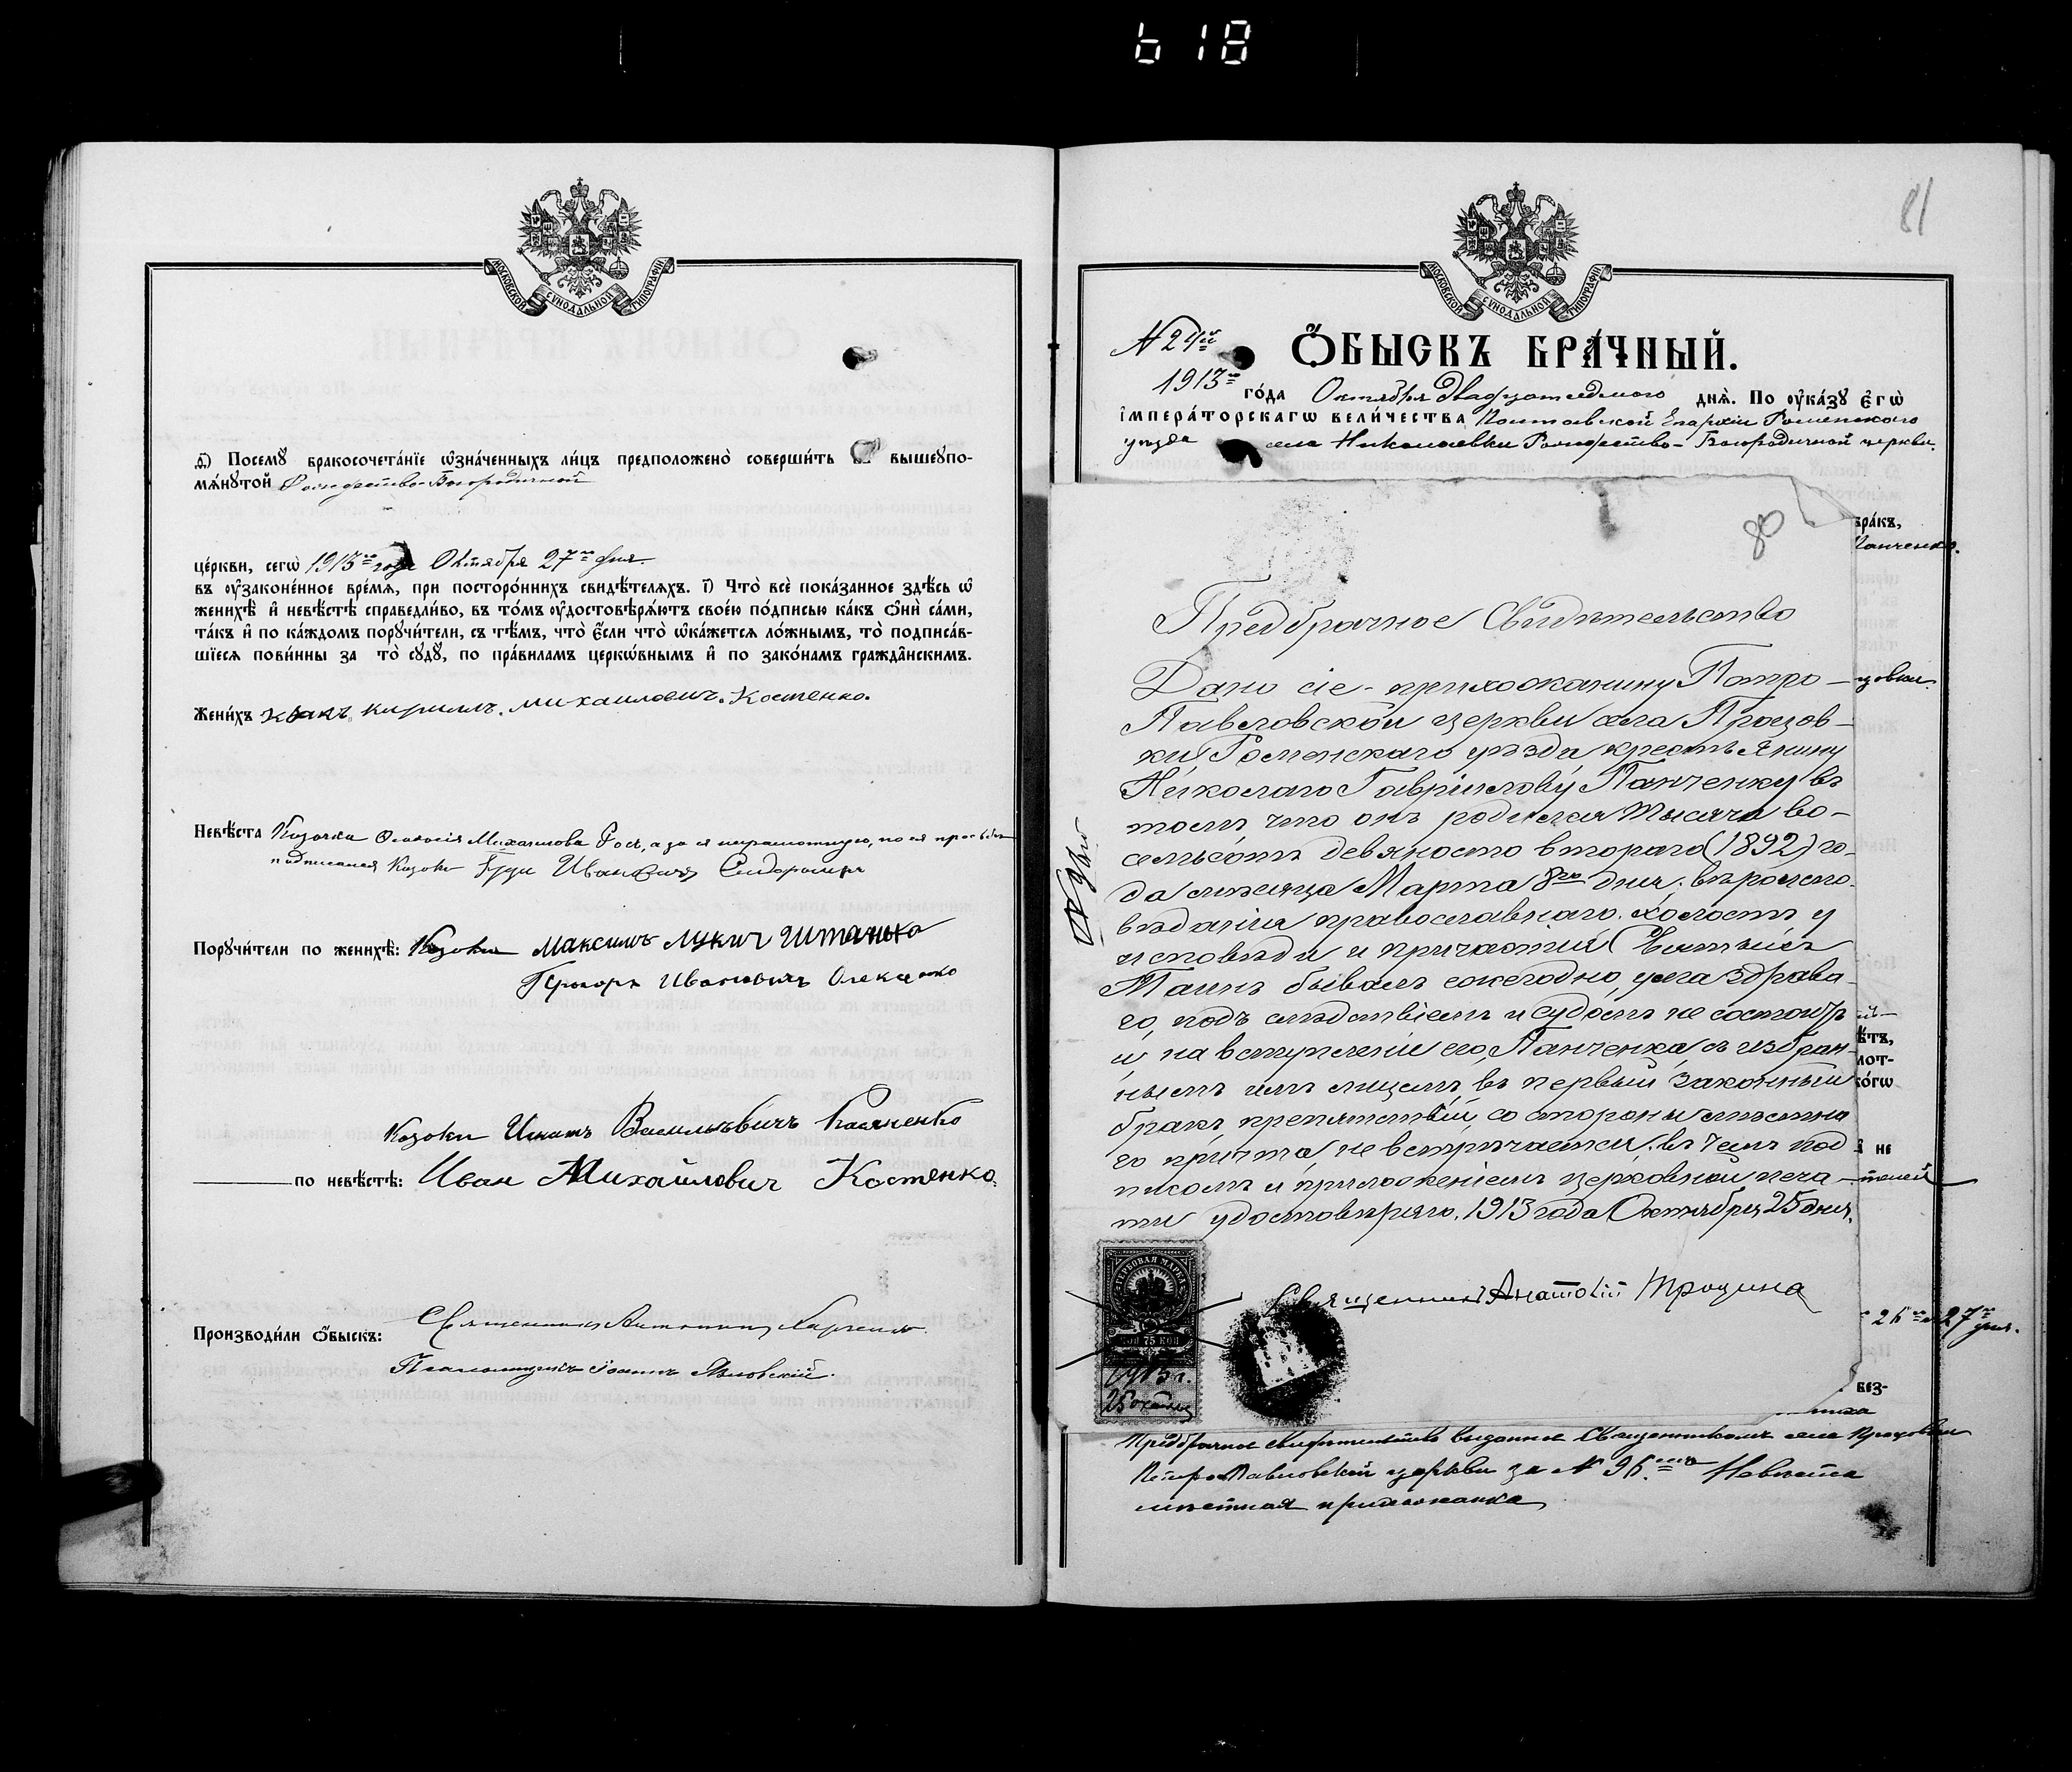 618
МОСКОВСКОЙ СУНОДАЛЬНОЙ ТИПОГРАФІИ
ѕ҃) Посемꙋ бракосочета́нїе ѿзна́ченныхъ ли́цъ предположено̀ соверши́ть въ вышеꙋпо-
мѧ́нꙋтой Рождество-Богородичной
це́ркви, сегѡ̀ 1913го года Октября 27го дня.
въ ᲂу҆зако́ненное вре́мѧ, при посторо́ннихъ свидѣ́телѧхъ. і҃) Что̀ всѐ пока́занное здѣ́сь ѡ҆
женихѣ̀ и҆ невѣ́стѣ справедли́во, въ то́мъ ᲂу҆достовѣрѧ́ютъ свое́ю по́дписью ка́къ ѻ҆нѝ са́ми,
та́къ и҆ по ка́ждомъ порꙋчи́тели, съ тѣ́мъ, что̀ є҆́сли что̀ ѡ҆ка́жетсѧ ло́жнымъ, то̀ подписа́в-
шїесѧ пови́нны за то̀ сꙋдꙋ̀, по пра́виламъ церкѡ́внымъ и҆ по зако́намъ гражда̑нскимъ.
Жени́хъ Кирилъ. Михаиловичъ. Костенко.
Невѣ́ста Козачка Михаилова а за ея неграмотную, по ея просьбе
подписался Козакъ Ивановичъ
Порꙋчи́тели по женихѣ̀: Козаки Максимъ Лукич Штанько
Ивановичъ
Козаки Игнатъ Васильевичъ
по невѣ́стѣ: Иван Михайлович Костенко.
Производи́ли ѻ҆́быскъ: Священникъ
Псаломщикъ Іоаннъ
81
МОСКОВСКОЙ СУНОДАЛЬНОЙ ТИПОГРАФІИ
N 24й
Ѻ҆́БЫСКЪ БРА́ЧНЫЙ.
1913го го́да Октября двадцатседмого днѧ̀. По ᲂу҆ка́зꙋ Є҆гѡ̀
І҆мпера́торскагѡ вели́чества Полтавской Епархіи Роменского
уезда села Николаевки Рождество-Богородичной церкви.
80
бра́къ,
Панченко.
Предбрачное Свидѣтельство
Дано сіе - прихожанину Петро -
Павловской церкви села Процов-
ки, Роменскаго уѣзда, крестьянину
Николаю Гаврiилову Панченку въ
томъ, что онъ родился тысяча во-
семьсотъ девяносто второго (1892) го-
да мѣсяца Марта 8го дня; вѣроиспо-
вѣданія православнаго, холостъ, у
исповѣди и причастія Святыхъ
Таинъ бывалъ ежегодно, ума здрава-
го, подъ слѣдствіемъ и судомъ не состоитъ
и на вступленіе его, Панченка, съ избран-
нымъ имъ лицемъ, въ первый законный
бракъ, препятствій, со стороны мѣстна
го причта, не встрѣчается; въ чемъ под
писомъ и приложеніемъ церковной печа-
ти удостовѣряю. 1913 года Октября 25 дня.
N 96й
Священникъ Анатолій Троцина
ГЕРБОВАЯ МАРКА
75 КОП
1913 г.
25 октяб
26го 27го дня.
без-
Предбрачное свидѣтельство выданное Священникомъ села Процовки
Петро-Павловской церкви за N 96 Невѣста
мѣстная прихожанка